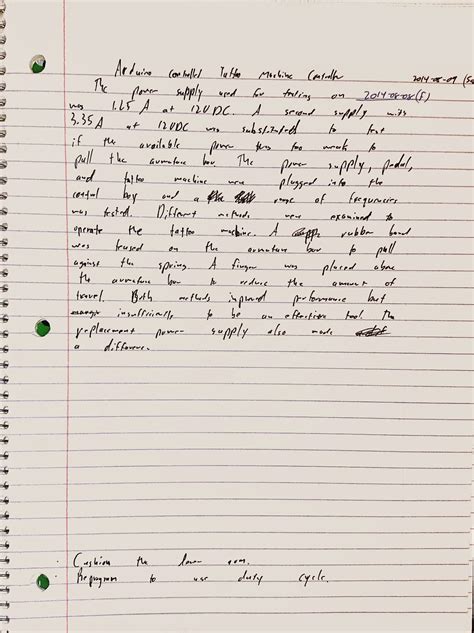 Arduino Controlled Tattoo Machine Controller 2014-08-09 (Sa
The power supply used for testing on 2014-08-08 (F)
was 1.25 A at 12VDC. A second supply with
3.35A at 12VDC was substituted to test
if the available power was too weak to
pull the armature bar. The power supply, pedal,
and tattoo machine were plugged into the
control box and a range of frequencies
was tested. Different methods were examined to
operate the tattoo machine. A rubber band
was used on the armature bar to pull
against the spring. A finger was placed above
the armature bar to reduce the amount of
travel. Both methods improved performance but
insufficiently to be an effective tool. The
replacement power supply also made
a difference.
Cushion the lower arm.
Reprogram to use duty cycle.